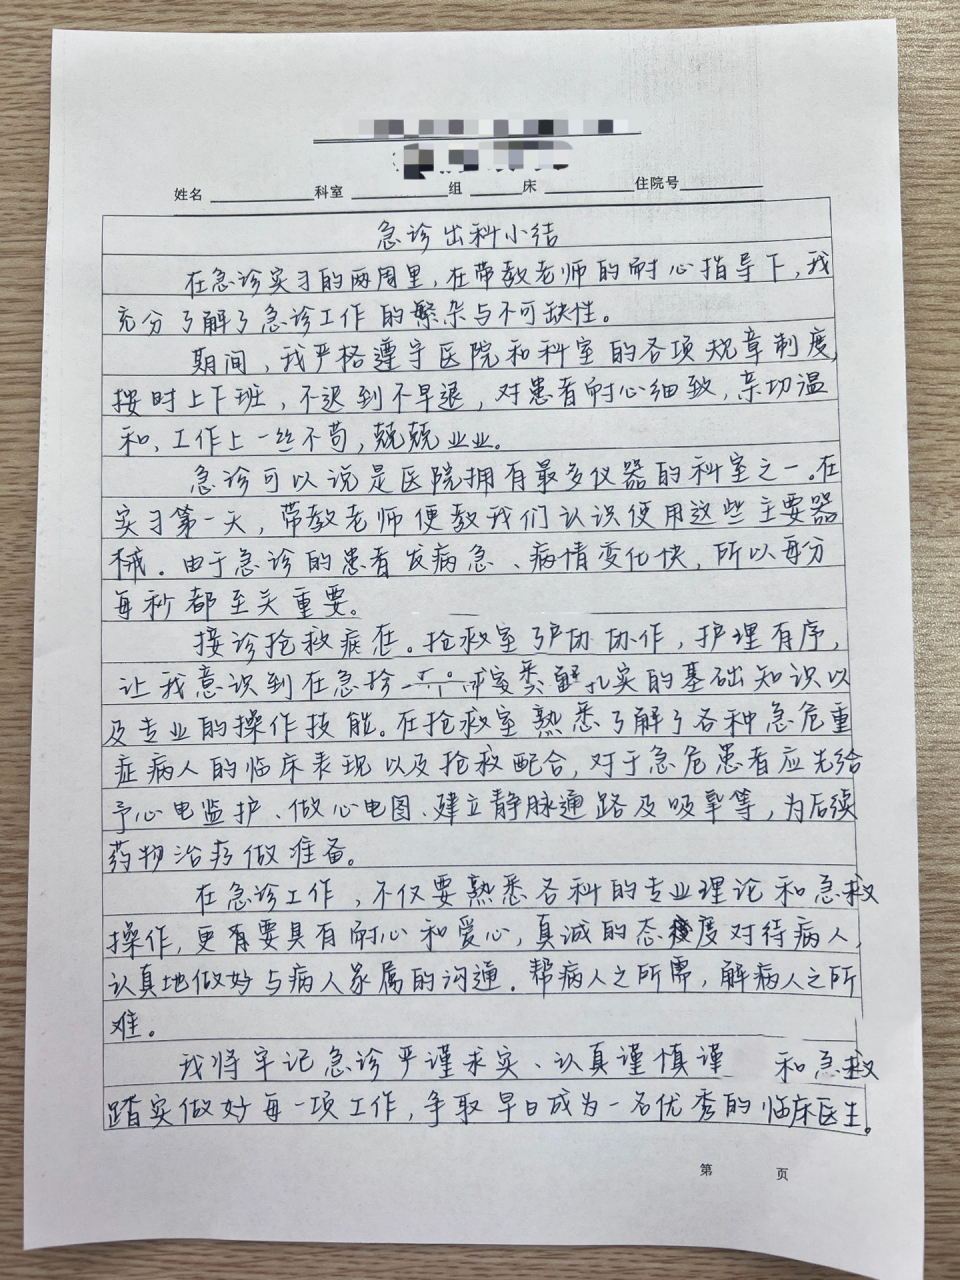 姓名 科室 组 床 住院号
急诊出科小结
在急诊实习的两周里,在带教老师的耐心指导下,我
充分了解了急诊工作的繁杂与不可缺性。
期间,我严格遵守医院和科室的各项规章制度,
按时上下班,不迟到不早退,对患者耐心细致,亲切温
和,工作上一丝不苟,兢兢业业。
急诊可以说是医院拥有最多仪器的科室之一。在
实习第一天,带教老师便教我们认识使用这些主要器
械。由于急诊的患者发病急、病情变化快,所以每分
每秒都至关重要。
接诊抢救。抢救室协作,护理有序,
让我意识到在急诊实的基础知识以
及专业的操作技能。在抢救室熟悉了解了各种急危重
症病人的临床表现以及抢救配合,对于急危患者应先给
予心电监护、做心电图、建立静脉通路及吸氧等,为后续
药物治疗做准备。
在急诊工作,不仅要熟悉各科的专业理论和急救
操作,更要具有耐心和爱心,真诚的态度对待病人,
认真地做好与病人家属的沟通。帮病人之所需,解病人之所
难。
我将牢记急诊严谨求实、认真谨慎谨 和急救
踏实做好每一项工作,争取早日成为一名优秀的临床医生。
第 页